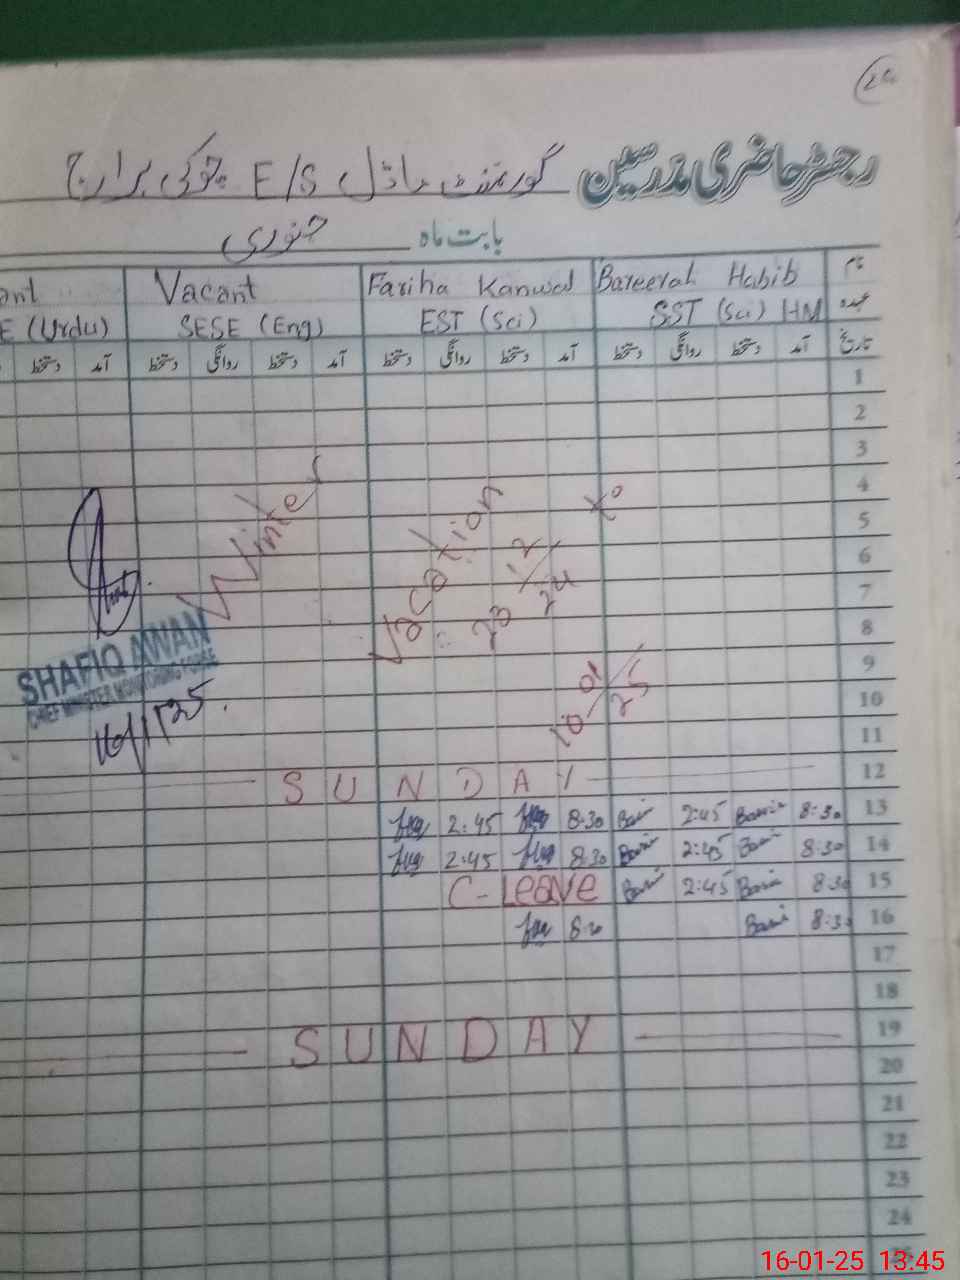 رجسٹر حاضری مدرسین گورنمنٹ ماڈل E/S چوکی برارج
بابت ماہ جنوری
نام Bareerah Habib Fariha Kanwal Vacant ant
عہدہ SST (Sci) HM EST (Sci) SESE (Eng) E (Urdu)
تاریخ آمد دستخط روانگی دستخط آمد دستخط روانگی دستخط آمد دستخط روانگی دستخط آمد دستخط
1
2
3
4
5
6
7
8
9
10
11
Winter Vacation 23 12/24 to
10 01/25
SHAFIQ AWAN
CHIEF MINISTER MONITORING FORCE
16/1/25.
12 SUNDAY
13 8:30 2:45 8:30 2:45
14 8:30 2:45 8:30 2:45
15 8:30 2:45 C-Leave
16 8:30
17
18
19 SUNDAY
20
21
22
23
24
25
16-01-25 13:45